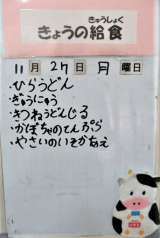 きゅうしょく
きょうの給食
11月27日月曜日
・ひらうどん
・ぎゅうにゅう
・きつねうどんじる
・かぼちゃのてんぷら
・やさいのいそかあえ